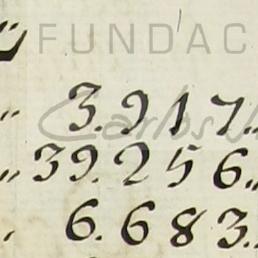 FUNDAC
3.917,,
,, 39.256,,
6.683.